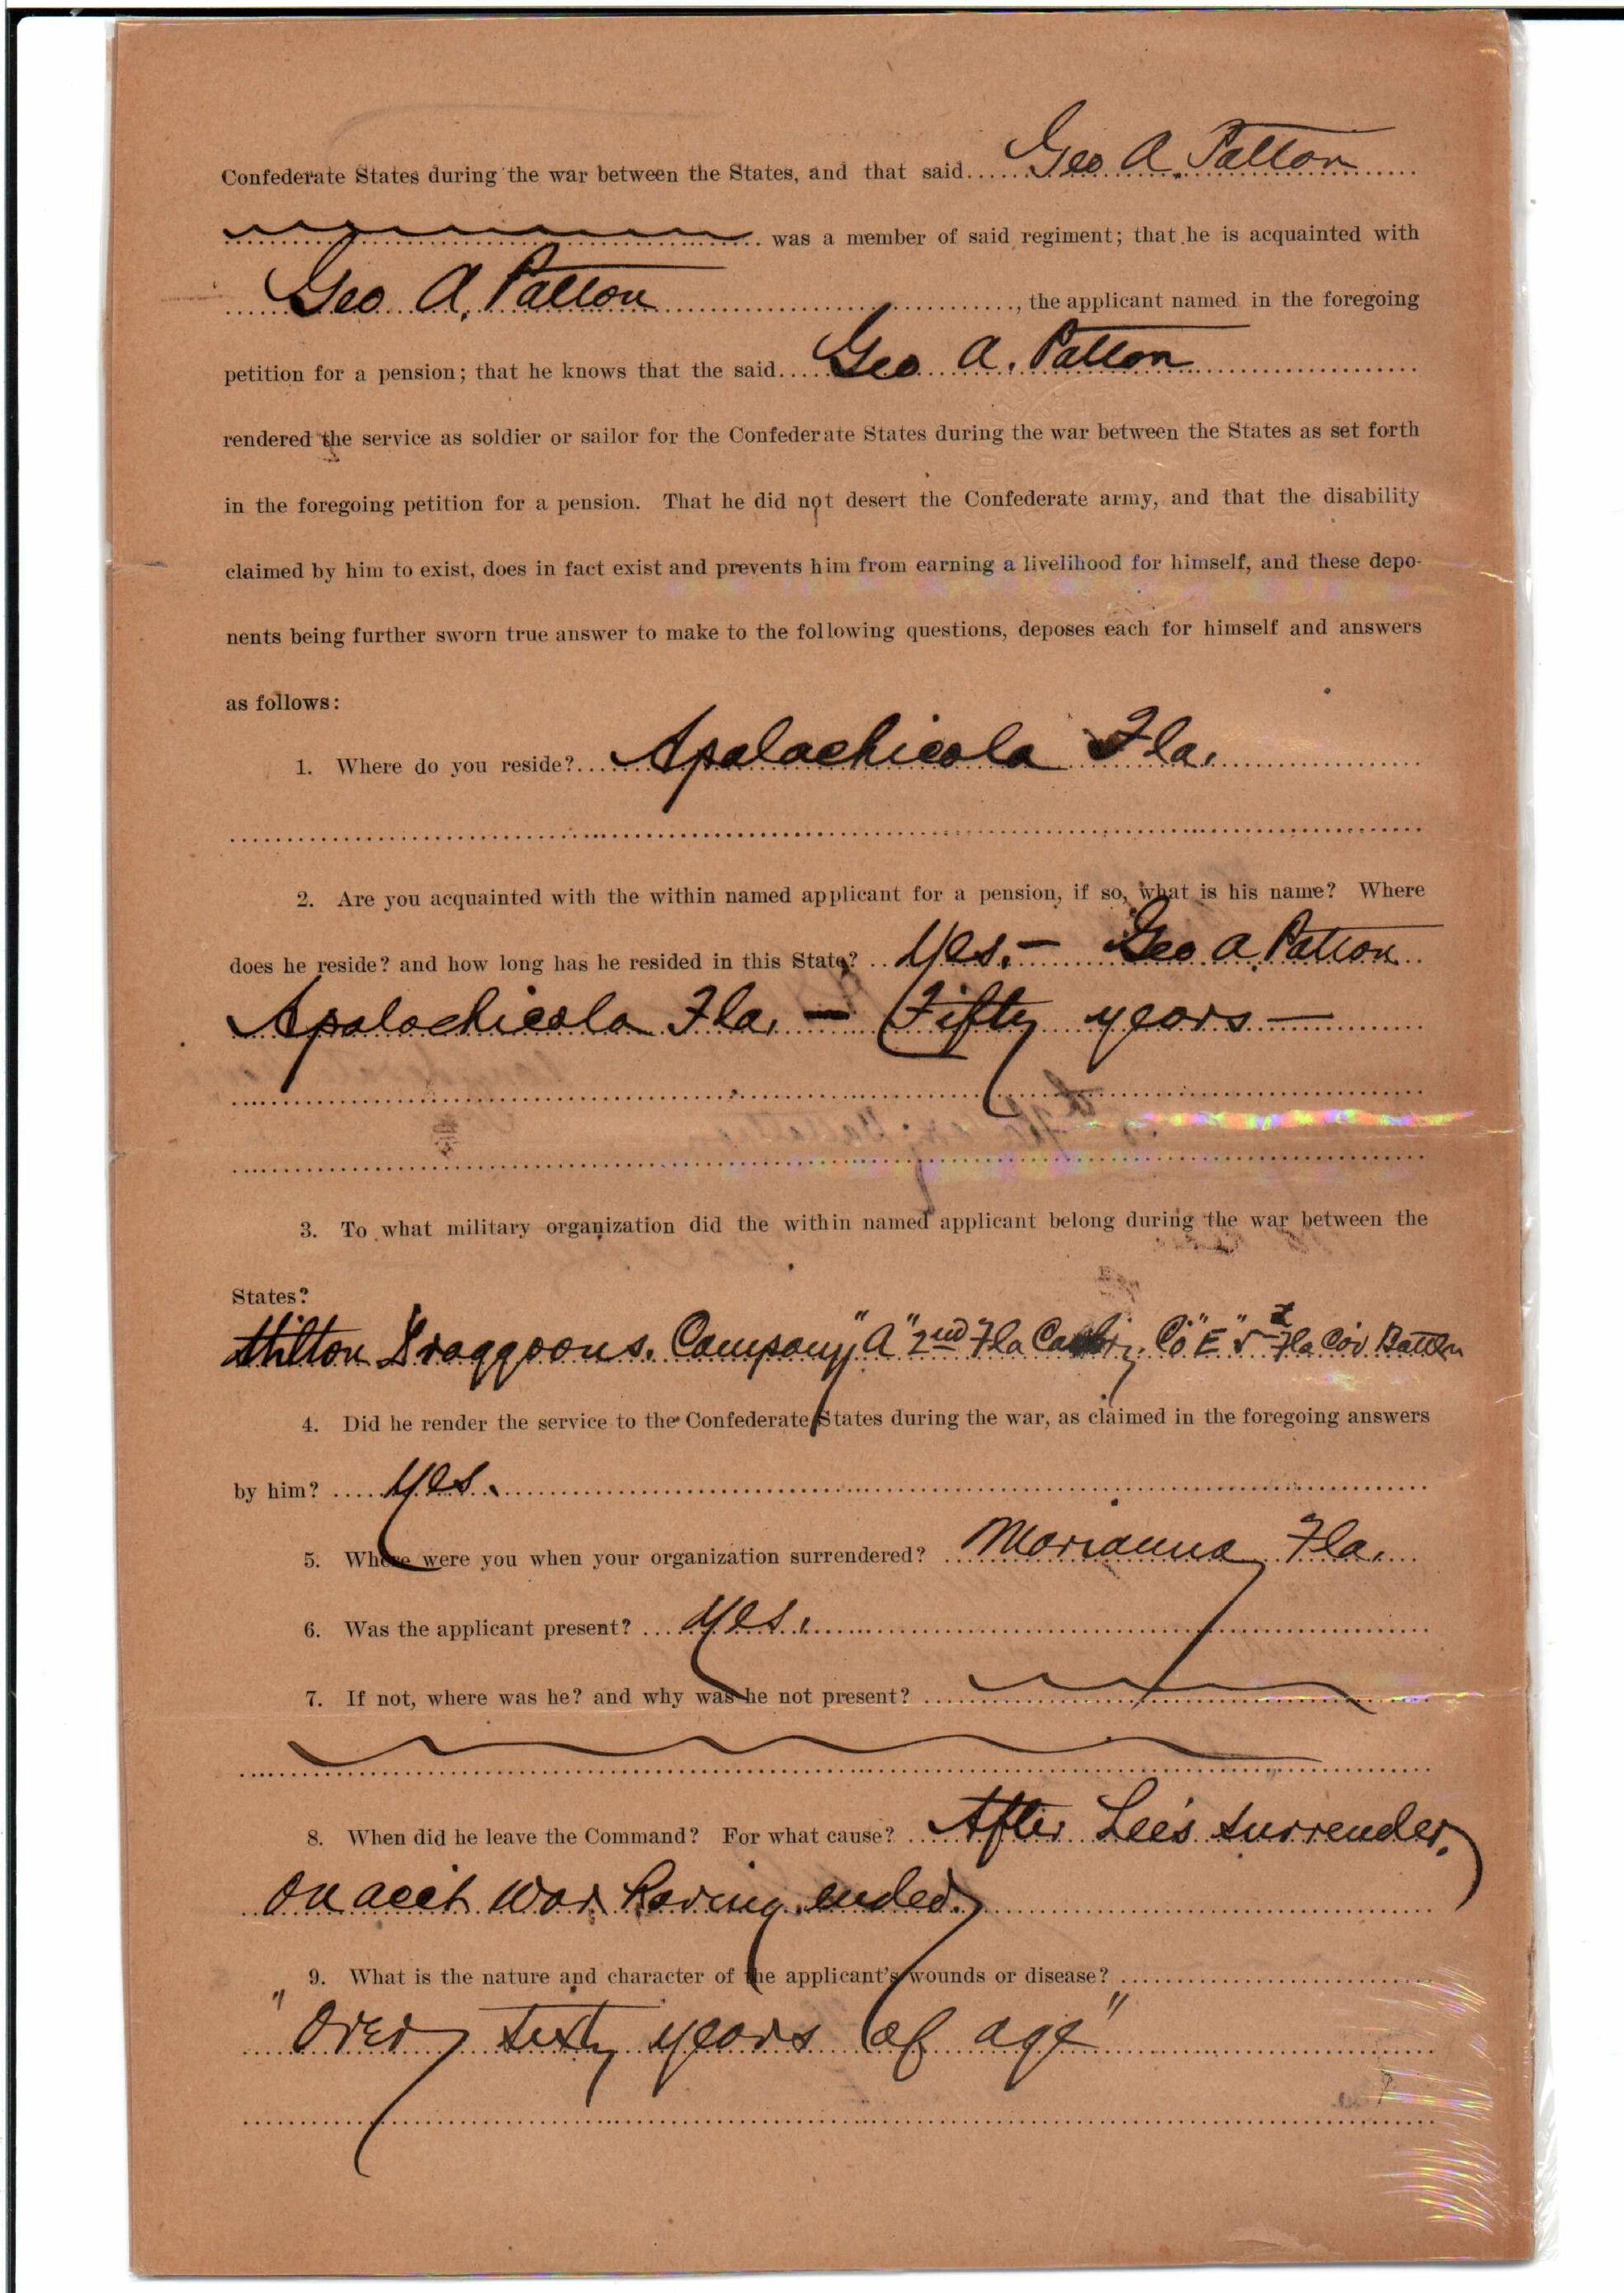 Confederate States during the war between the States, and that said Geo A. Patton
was a member of said regiment; that he is acquainted with
Geo A. Patton, the applicant named in the foregoing
petition for a pension; that he knows that the said Geo A. Patton
rendered the service as soldier or sailor for the Confederate States during the war between the States as set forth
in the foregoing petition for a pension. That he did not desert the Confederate army, and that the disability
claimed by him to exist, does in fact exist and prevents him from earning a livelihood for himself, and these depo-
nents being further sworn true answer to make to the following questions, deposes each for himself and answers
as follows:
1. Where do you reside? Apalachicola Fla.
2. Are you acquainted with the within named applicant for a pension, if so, what is his name? Where
does he reside? and how long has he resided in this State? Yes. — Geo A. Patton
Apalachicola Fla. — Fifty years —
3. To what military organization did the within named applicant belong during the war between the
States?
Milton Draggoons. Company "A" 2nd Fla Co "E" 5 Fla Cav Battln
4. Did he render the service to the Confederate States during the war, as claimed in the foregoing answers
by him? Yes.
5. Where were you when your organization surrendered? Marianna, Fla.
6. Was the applicant present? Yes.
7. If not, where was he? and why was he not present?
8. When did he leave the Command? For what cause? After Lee's surrender.
on acct war having ended.
9. What is the nature and character of the applicant's wounds or disease?
"Over sixty years of age"